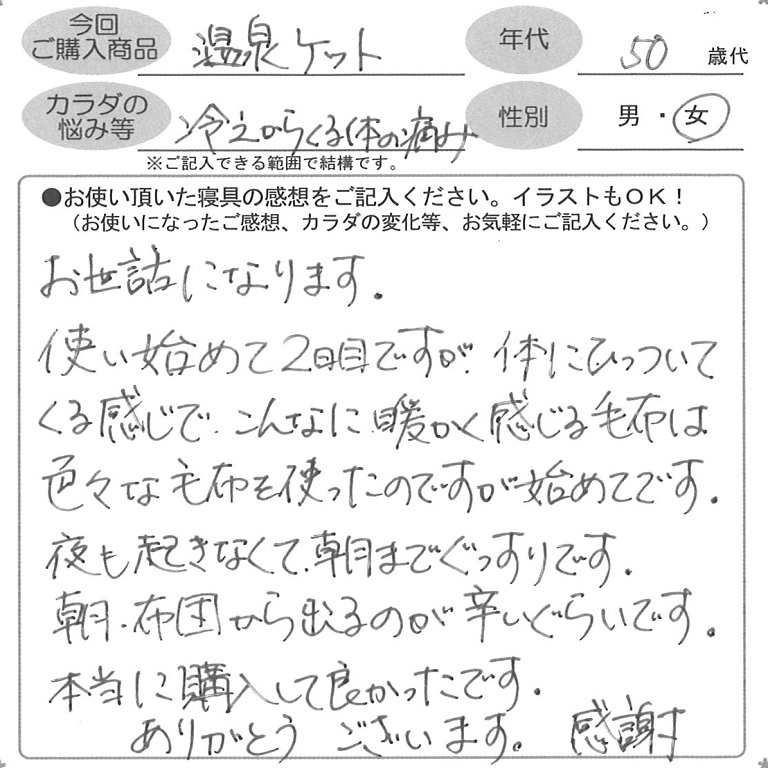 今回
ご購入商品 温泉ケット 年代 50 歳代
カラダの
悩み等 冷えからくる体の痛み 性別 男・女
※ご記入できる範囲で結構です。
●お使い頂いた寝具の感想をご記入ください。イラストもOK！
（お使いになったご感想、カラダの変化等、お気軽にご記入ください。）
お世話になります。
使い始めて2日目ですが、体にひっついて
くる感じで、こんなに暖かく感じる毛布は
色々な毛布を使ったのですが始めてです。
夜も起きなくて、朝までぐっすりです。
朝、布団から出るのが辛いぐらいです。
本当に購入して良かったです。
ありがとうございます。感謝